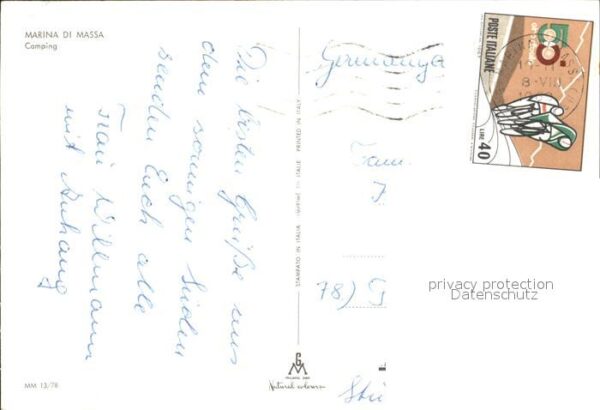 MARINA DI MASSA
Camping
Die besten Grüße aus
dem sonnigen Süden
senden Euch alle
Frau Willmann
mit Anhang
MM 13/78
STAMPATO IN ITALIA IMPRIMÉ EN ITALIE PRINTED IN ITALY
GM
MILANO
Natural colours
Germany
Fam
78)
POSTE ITALIANE
50
LIRE 40
8-VIII
privacy protection
Datenschutz